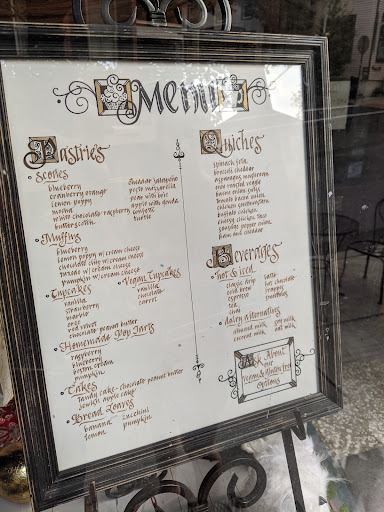 Menu
Pastries
Scones
blueberry
cranberry orange
lemon poppy
mocha
white chocolate raspberry
butterscotch
cheddar jalapeño
pesto mozzarella
pear with brie
apple with gouda
confetti
turtle
Muffins
blueberry
lemon poppy w/cream cheese
chocolate chip w/cream cheese
tuxedo w/cream cheese
pumpkin
Cupcakes
vanilla
strawberry
marble
red velvet
chocolate peanut butter
Vegan Cupcakes
vanilla
chocolate
carrot
Homemade Pop Tarts
raspberry
blueberry
boston cream
pumpkin
Cakes
tandy cake-chocolate peanut butter
jewish apple cake
Bread Loaves
banana
lemon
zucchini
pumpkin
Quiches
spinach feta
broccoli cheddar
asparagus mushroom
bacon onion swiss
tomato bacon onion
chicken southwestern
buffalo chicken
sausage pepper onion
ham and cheddar
Beverages
hot & iced
classic drip
cold brew
espresso
tea
chai
latte
hot chocolate
frappes
smoothies
dairy alternatives
almond milk
coconut milk
soy milk
oat milk
Ask About
our
Vegan & Gluten Free
Options